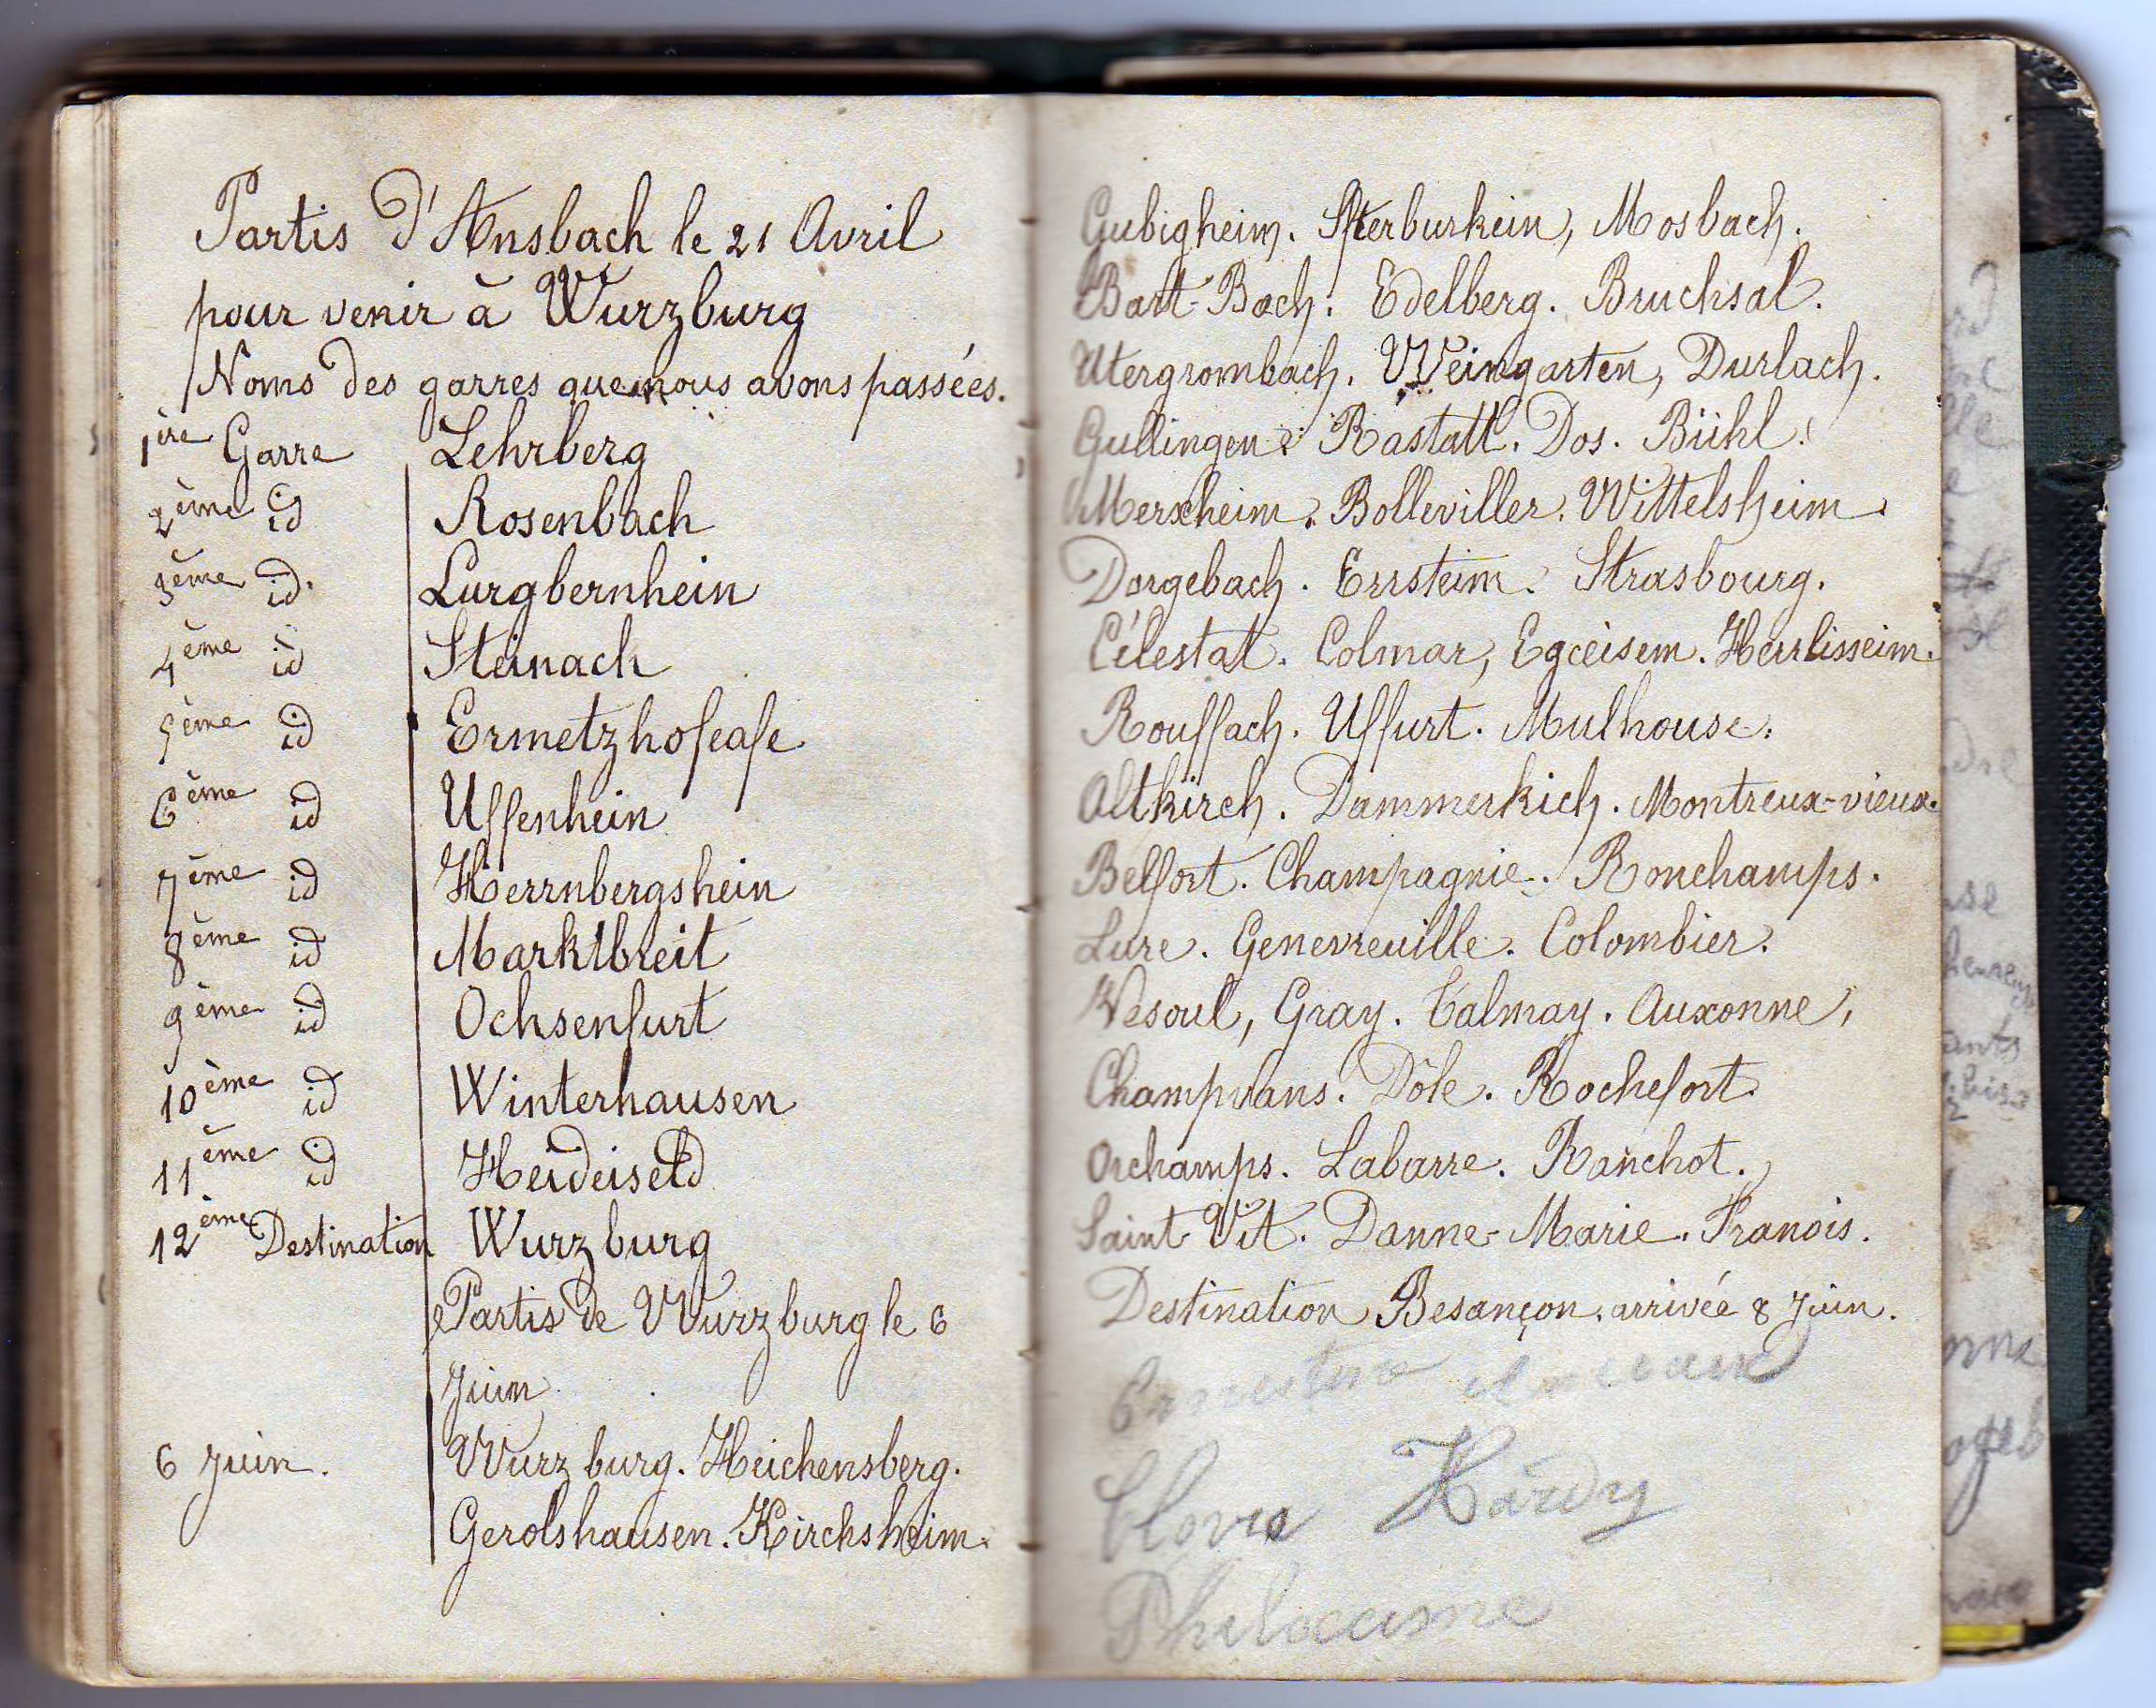 Partis d'Ansbach le 21 Avril
pour venir à Wurzburg
Noms des garres que nous avons passées.
1ère Garre Lehrberg
2ème id Rosenbach
3ème id. Lurgbernhein
4ème id Steinach
5ème id Ermetzhofeafe
6ème id Uffenhein
7ème id Herrnbergshein
8ème id Marktbreit
9ème id Ochsenfurt
10ème id Winterhausen
11ème id Heideiseld
12ème Destination Wurzburg
Partis de Wurzburg le 6
Juin
6 Juin. Wurzburg. Heichensberg.
Gerolshausen. Kirchsheim.
Gubigheim. Sterburkein, Mosbach.
Bart-Bach. Edelberg. Bruchsal.
Utergrombach. Weingarten, Durlach.
Gullingen. Rastatt. Dos. Bühl.
Merxheim. Bolleviller. Wittelsheim.
Dorgebach. Erssteim. Strasbourg.
Célestat. Colmar, Egceisem. Herrlisseim.
Rouffach. Uffurt. Mulhouse.
Altkirch. Dammerkich. Montreux-vieux.
Belfort. Champagnie. Ronchamps.
Lure. Genevreuille. Colombier.
Vesoul, Gray. Talmay. Auxonne,
Champvans. Dôle. Rochefort
Orchamps. Labarre. Ranchot.
Saint-Vit. Danne-Marie. Franois.
Destination Besançon. arrivée 8 Juin.
Hardy